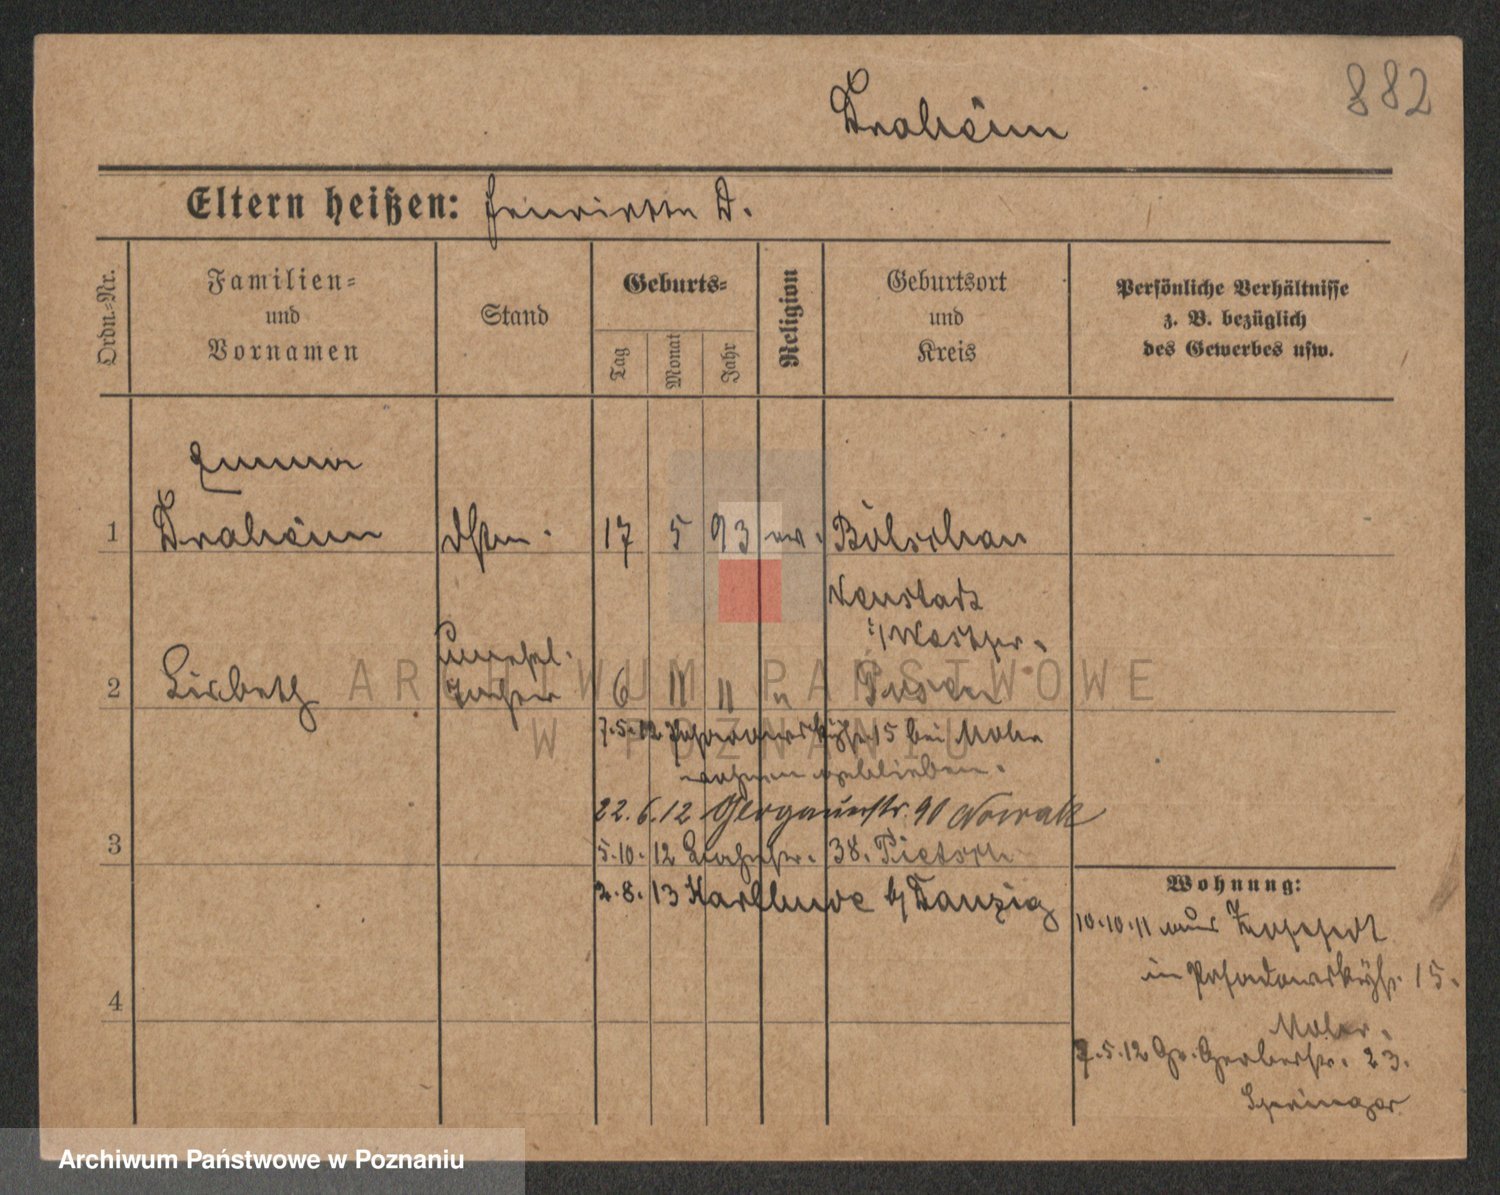 882
Draheim
Eltern heißen: Henriette D.
Ordn.-Nr.
Familien-
und
Vornamen
Stand
Geburts-
Tag
Monat
Jahr
Religion
Geburtsort
und
Kreis
Persönliche Verhältnisse
z. B. bezüglich
des Gewerbes usw.
Emma
1 Draheim 17 5 93 ev. Bölschau
Neustadt
i/Westpr.
2 Lisbeth Tochter 6 11 11 " Posen
7.5.12 15 bei Maler
wohnen geblieben.
22.6.12 90 Nowak
3
5.10.12 38. Pietsch
2.8.13 b/ Danzig
4
Wohnung:
10.10.11 aus
in Posadowskystr. 15.
Maler.
7.5.12 Gr. Gerberstr. 23.
Springer
ARCHIWUM PAŃSTWOWE
W POZNANIU
Archiwum Państwowe w Poznaniu